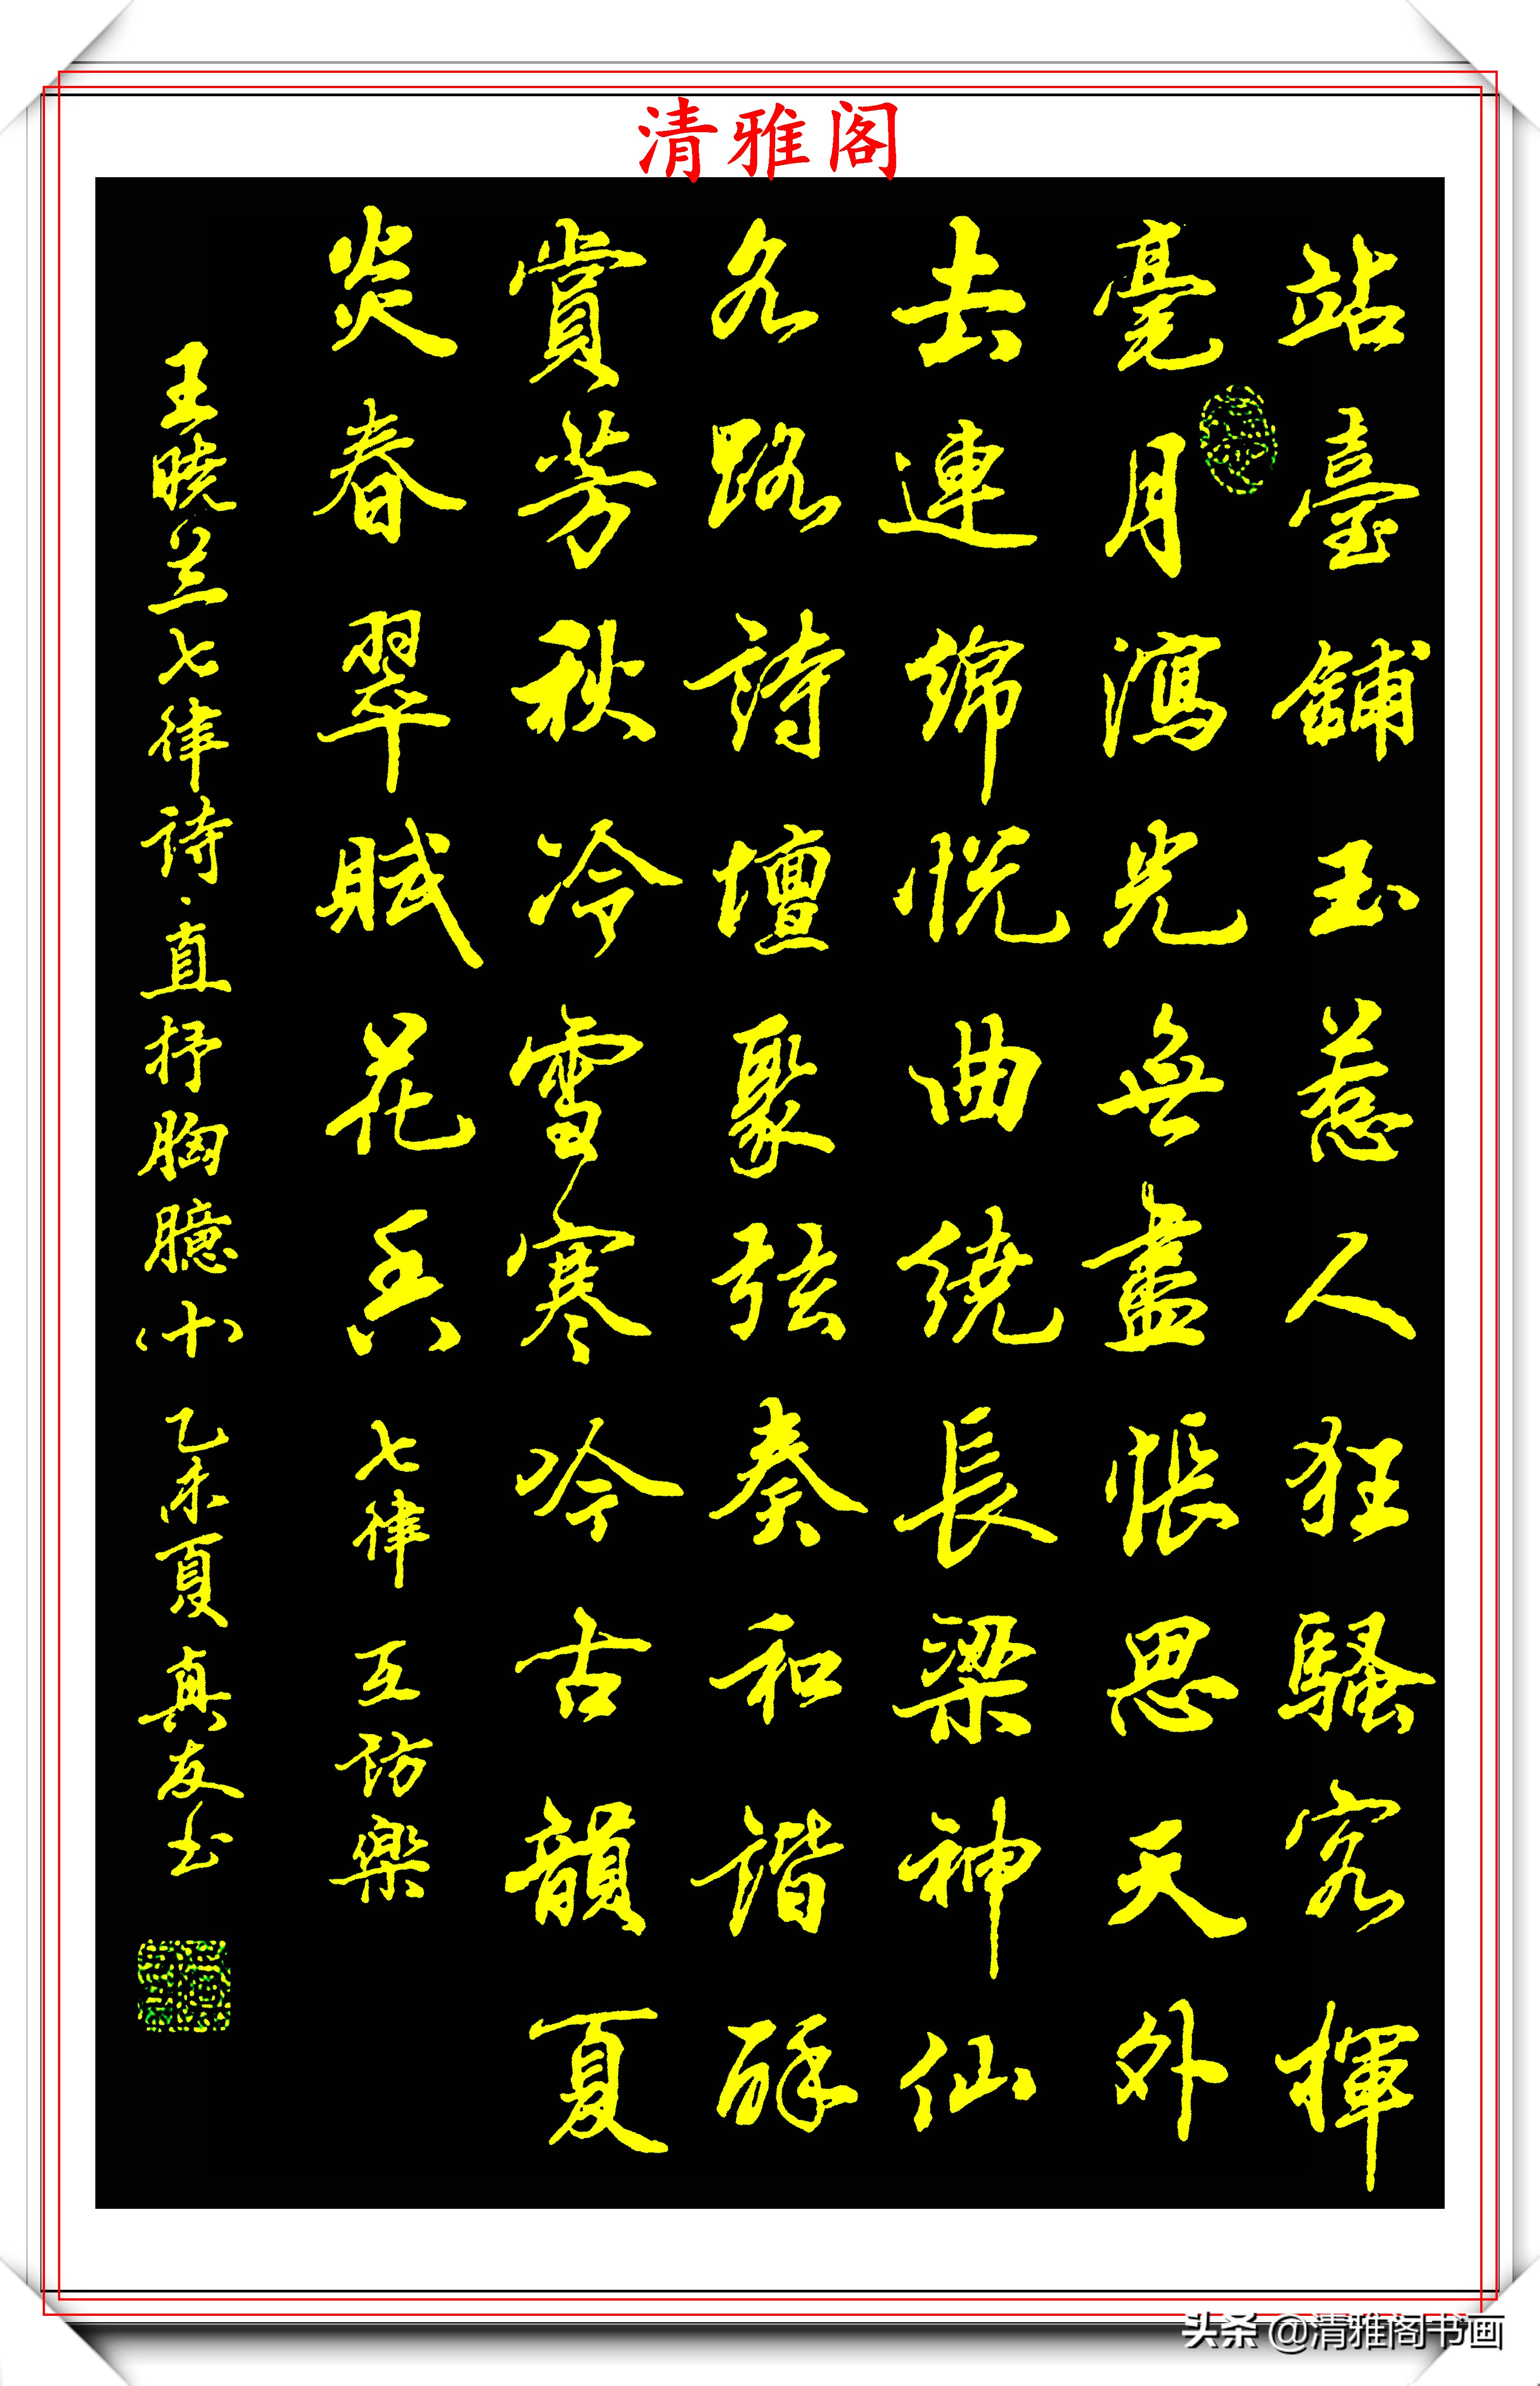 清雅阁
站臺鋪玉惹人狂騷客揮
毫月瀉光無盡悵思天外
去連綿悦曲繞長梁神仙
各路詩壇聚弦奏和谐酥
賞芳秋冷雪寒吟古韻夏
炎春翠賦花香 七律 互访樂
王晓兰七律诗·直抒胸臆(十) 乙未夏 真友书
头条 @清雅阁书画